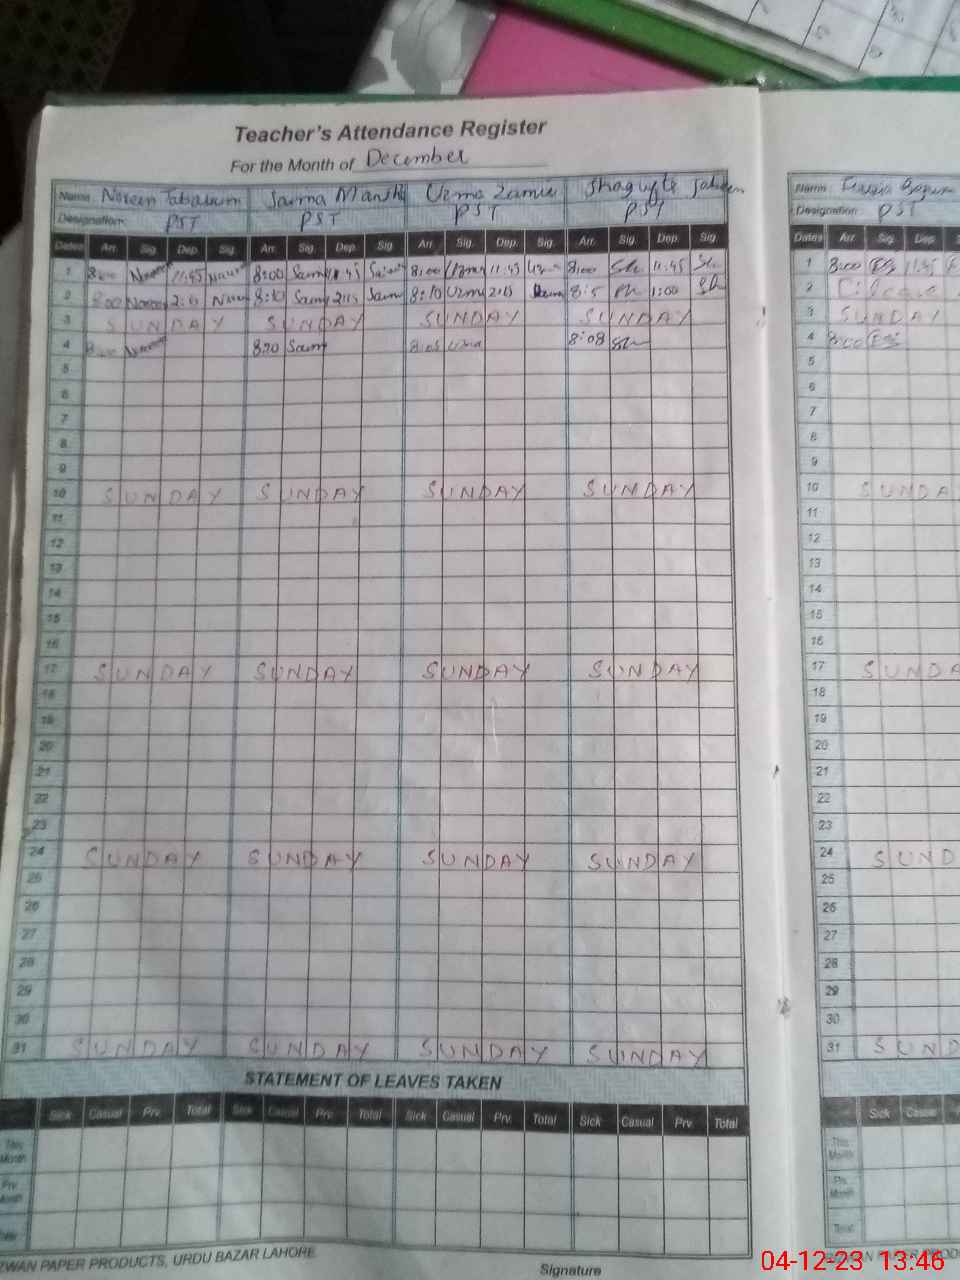 Teacher's Attendance Register
For the Month of December
Name Noreen Tabasum Saima Manth Uzma Zamir Shagufta Jabeen Name Begum
Designation: PST PST PST PST Designation: PST
Dates Arr. Sig. Dep. Sig. Arr. Sig. Dep. Sig. Arr. Sig. Dep. Sig. Arr. Sig. Dep. Sig. Dates Arr. Sig. Dep.
1 8:00 Noreen 11:45 8:00 Sam 11:45 8:00 Uzma 11:45 8:00 Sh 11:45 Sh 1 8:00 11:45
2 8:00 Noreen 8:10 Sam 2:15 Sam 8:10 Uzm 2:15 8:5 1:00 Sh 2
3 SUNDAY SUNDAY SUNDAY SUNDAY 3 SUNDAY
4 Noreen Sam 8:05 Uzma 8:08 Sh 4 8:00
5 5
6 6
7 7
8 8
9 9
10 SUNDAY SUNDAY SUNDAY SUNDAY 10 SUNDA
11 11
12 12
13 13
14 14
15 15
16 16
17 SUNDAY SUNDAY SUNDAY SUNDAY 17 SUNDA
18 18
19 19
20 20
21 21
22 22
23 23
24 SUNDAY SUNDAY SUNDAY SUNDAY 24 SUND
25 25
26 26
27 27
28 28
29 29
30 30
31 SUNDAY SUNDAY SUNDAY SUNDAY 31 SUND
STATEMENT OF LEAVES TAKEN
Sick Casual Prv. Total Sick Casual Prv. Total Sick Casual Prv. Total Sick Casual Prv. Total Sick Casual
This Month This Month
Prv. Month Prv. Month
Total Total
ZWAN PAPER PRODUCTS, URDU BAZAR LAHORE ZWAN PAPER PROD
Signature
04-12-23 13:46